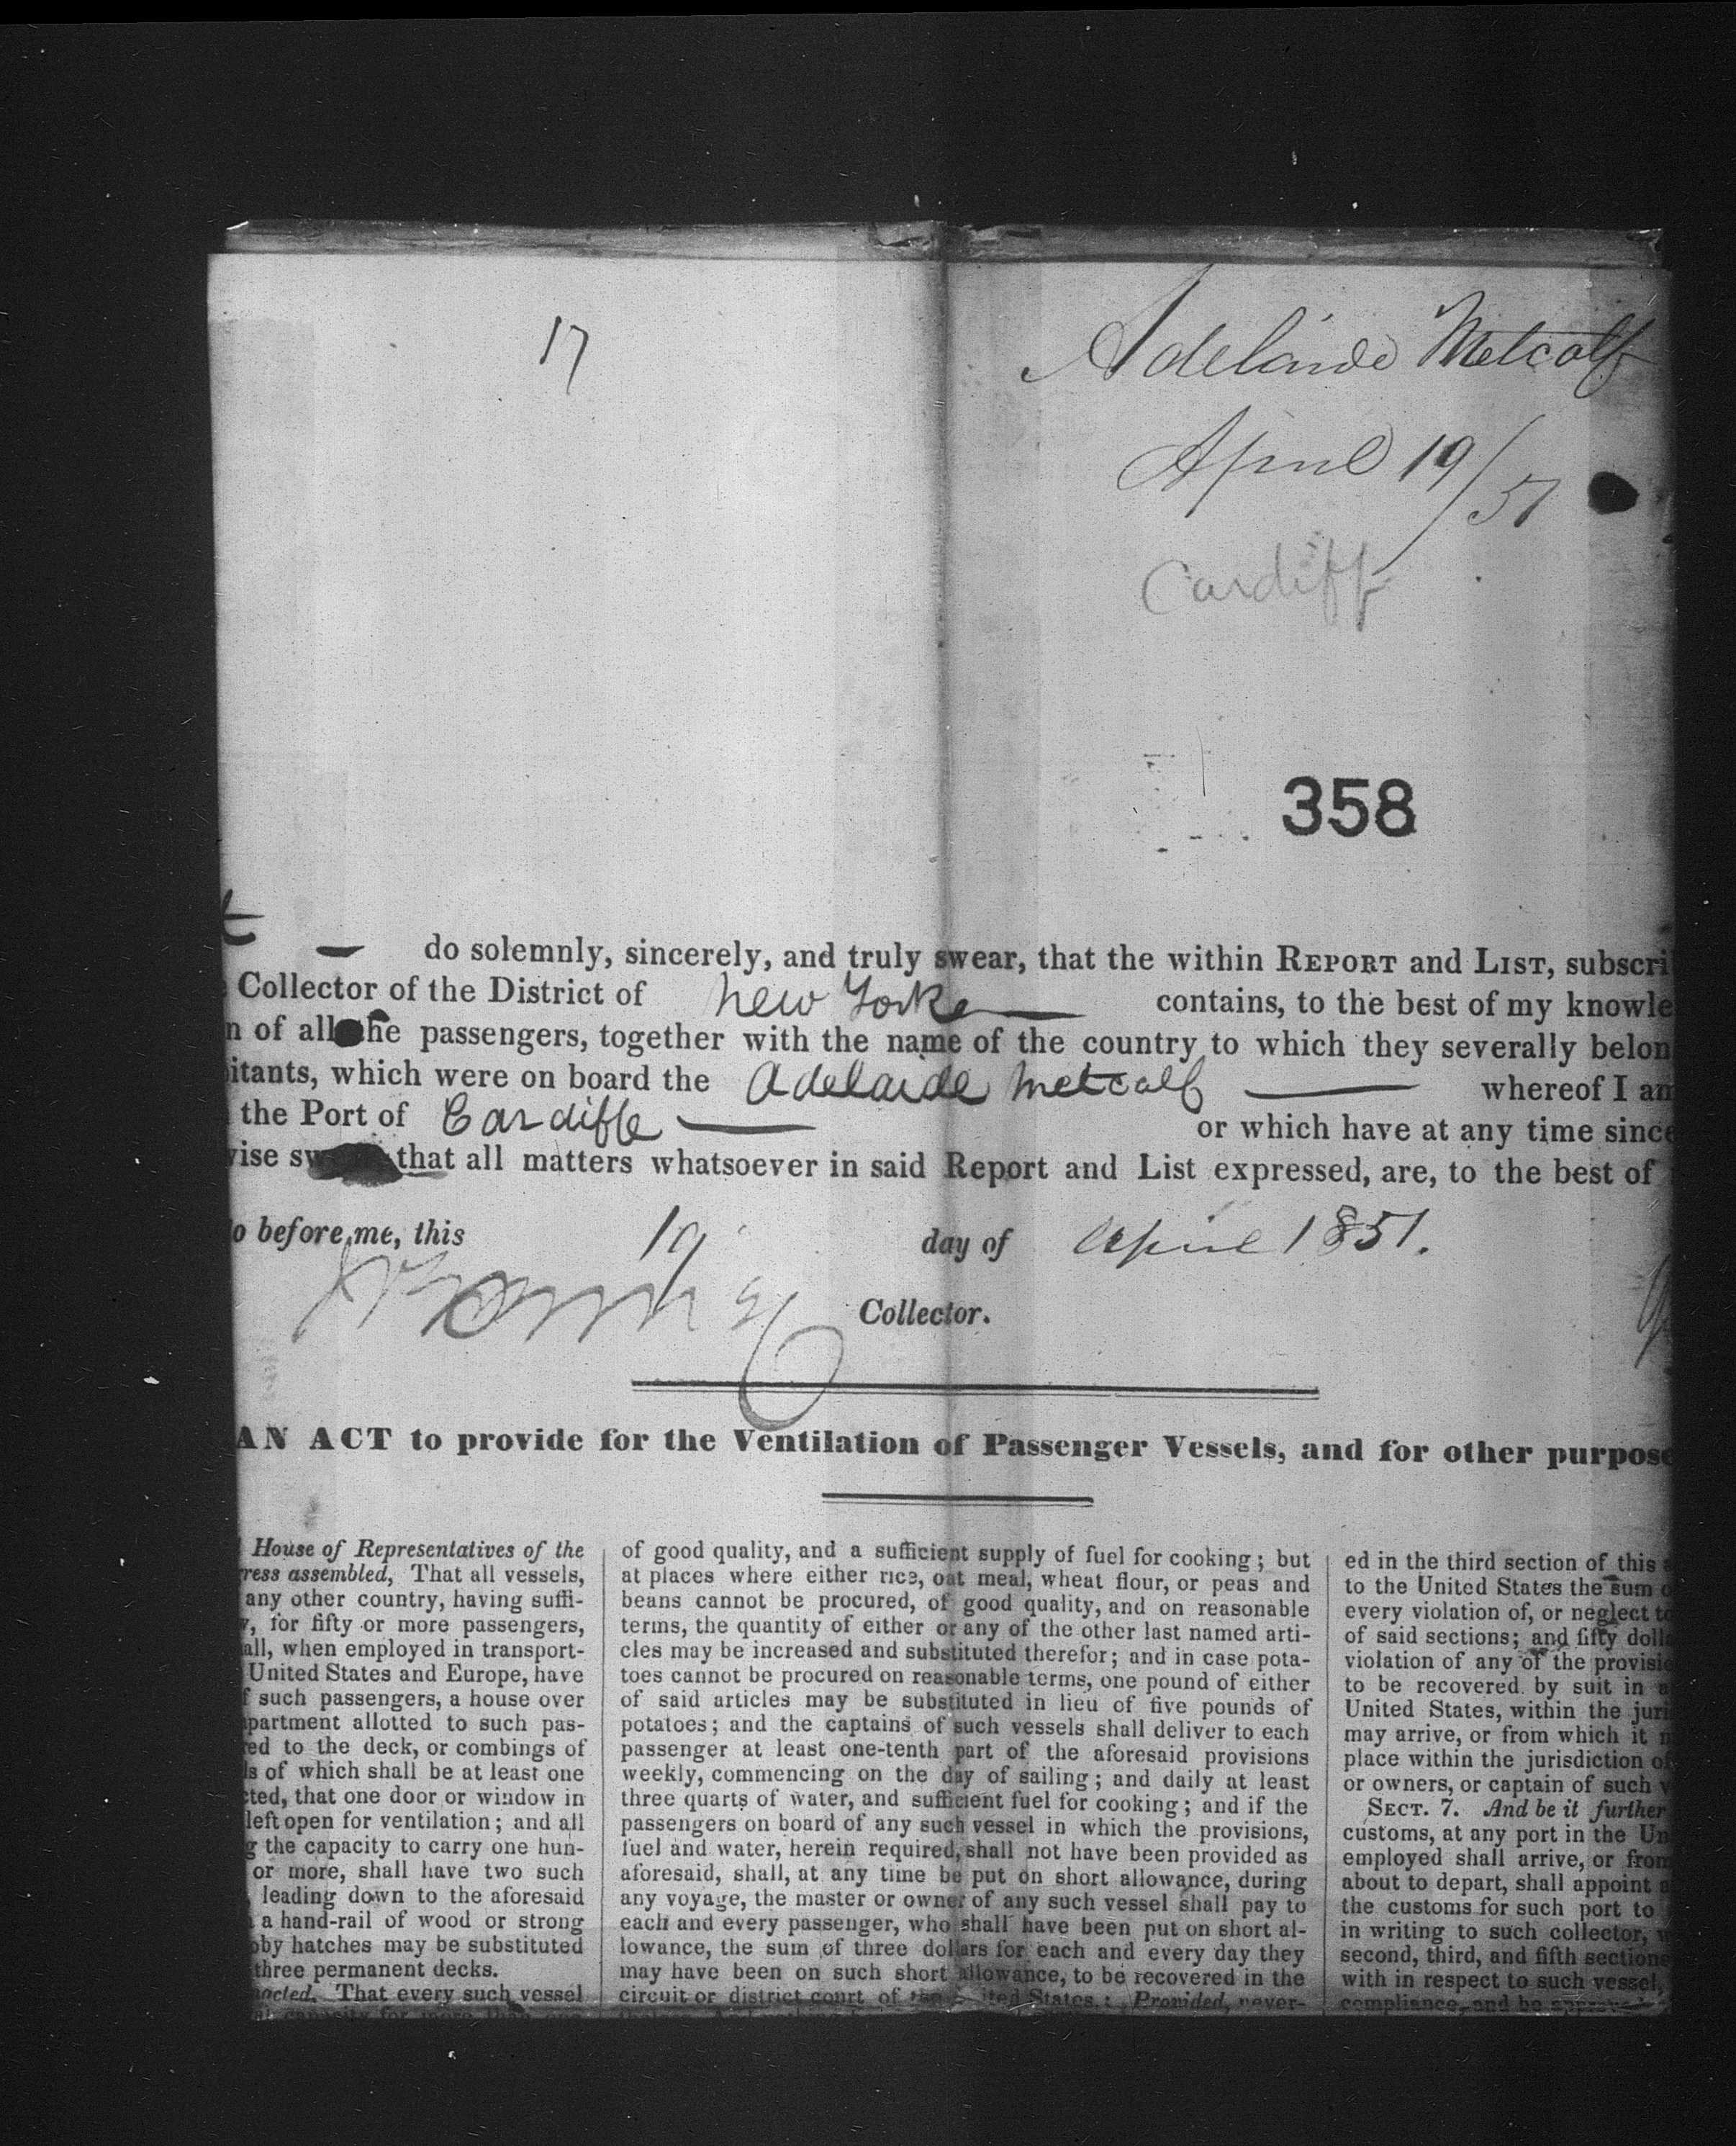 17
Adelaide Metcalf
April 19/51
Cardiff
358
do solemnly, sincerely, and truly swear, that the within REPORT and LIST, subscri
Collector of the District of New Yorke contains, to the best of my knowle
n of all the passengers, together with the name of the country to which they severally belon
itants, which were on board the Adelaide Metcalf whereof I am
the Port of Cardiffe or which have at any time since
vise sw that all matters whatsoever in said Report and List expressed, are, to the best of
o before me, this 19 day of April 1851.
Collector.
AN ACT to provide for the Ventilation of Passenger Vessels, and for other purpose
House of Representatives of the
ress assembled, That all vessels,
any other country, having suffi-
y, for fifty or more passengers,
all, when employed in transport-
United States and Europe, have
f such passengers, a house over
partment allotted to such pas-
ed to the deck, or combings of
ls of which shall be at least one
cted, that one door or window in
left open for ventilation; and all
g the capacity to carry one hun-
or more, shall have two such
leading down to the aforesaid
a hand-rail of wood or strong
oby hatches may be substituted
three permanent decks.
nacted. That every such vessel
of good quality, and a sufficient supply of fuel for cooking; but
at places where either rice, oat meal, wheat flour, or peas and
beans cannot be procured, of good quality, and on reasonable
terms, the quantity of either or any of the other last named arti-
cles may be increased and substituted therefor; and in case pota-
toes cannot be procured on reasonable terms, one pound of either
of said articles may be substituted in lieu of five pounds of
potatoes; and the captains of such vessels shall deliver to each
passenger at least one-tenth part of the aforesaid provisions
weekly, commencing on the day of sailing; and daily at least
three quarts of water, and sufficient fuel for cooking; and if the
passengers on board of any such vessel in which the provisions,
fuel and water, herein required, shall not have been provided as
aforesaid, shall, at any time be put on short allowance, during
any voyage, the master or owner of any such vessel shall pay to
each and every passenger, who shall have been put on short al-
lowance, the sum of three dollars for each and every day they
may have been on such short allowance, to be recovered in the
circuit or district court of the United States: Provided, never-
ed in the third section of this
to the United States the sum o
every violation of, or neglect to
of said sections; and fifty doll
violation of any of the provisio
to be recovered by suit in
United States, within the juri
may arrive, or from which it
place within the jurisdiction of
or owners, or captain of such v
SECT. 7. And be it further
customs, at any port in the Un
employed shall arrive, or from
about to depart, shall appoint
the customs for such port to
in writing to such collector,
second, third, and fifth sections
with in respect to such vessel,
compliance, and be approved